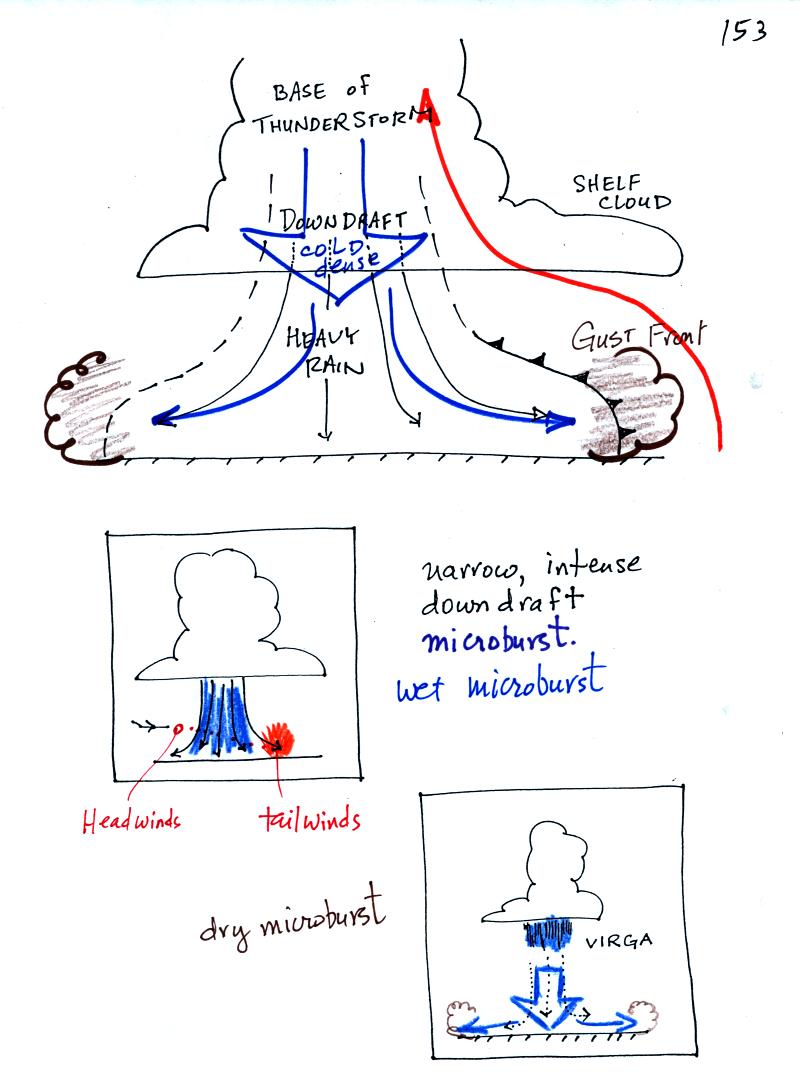 153
BASE of
THUNDERSTORM
SHELF
CLOUD
DOWNDRAFT
COLD
dense
HEAVY
RAIN
Gust Front
narrow, intense
downdraft
microburst.
wet microburst
Headwinds
tailwinds
dry microburst
VIRGA